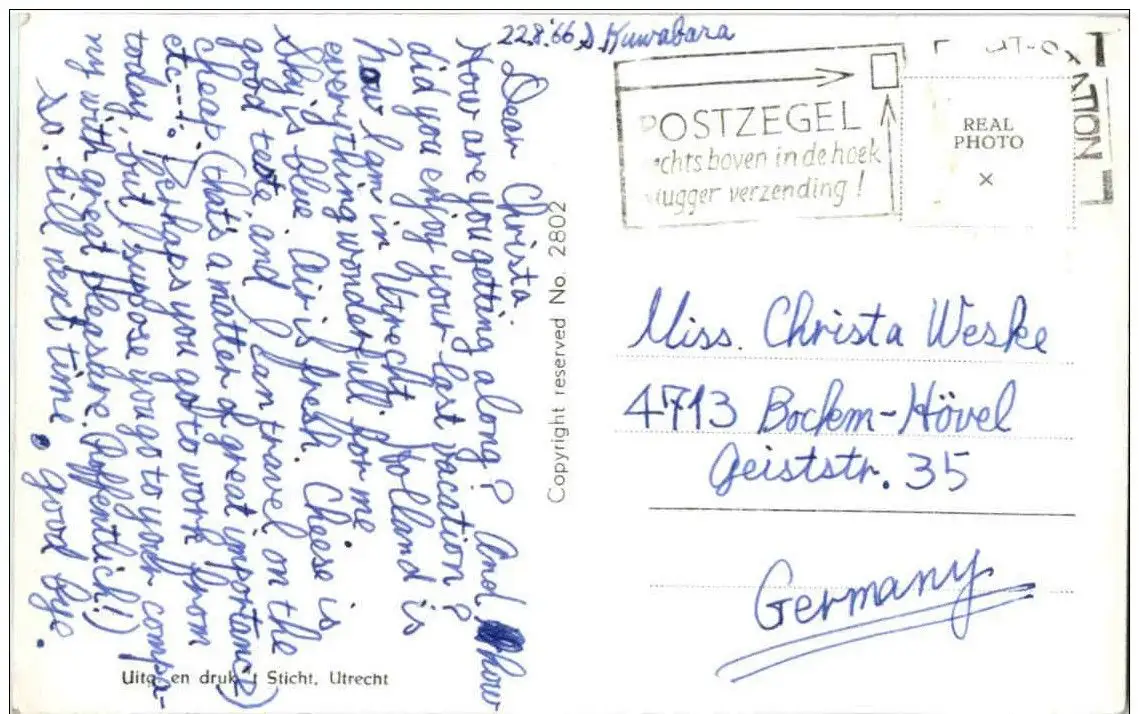 22.8.'66 S. Kuwabara
Dear Christa.
How are you getting along? And how
did you enjoy your last vacation?
Now I am in Utrecht, Holland is
everything wonderfull for me
Sky is blue. Air is fresh. Cheese is
good teste, and I can travel on the
cheap (that's a matter of great importance)
etc---. Perhaps you go to work from
today, but I supose you go to your compa-
ny with great pleasure. (Hoffentlich!)
So. till next time. good bye.
Uitg. en druk 't Sticht, Utrecht
Copyright reserved No. 2802
POSTZEGEL
chts boven in de hoek
lugger verzending!
NTION
REAL
PHOTO
x
Miss. Christa Weske
4713 Bockem-Hövel
Geiststr. 35
Germany